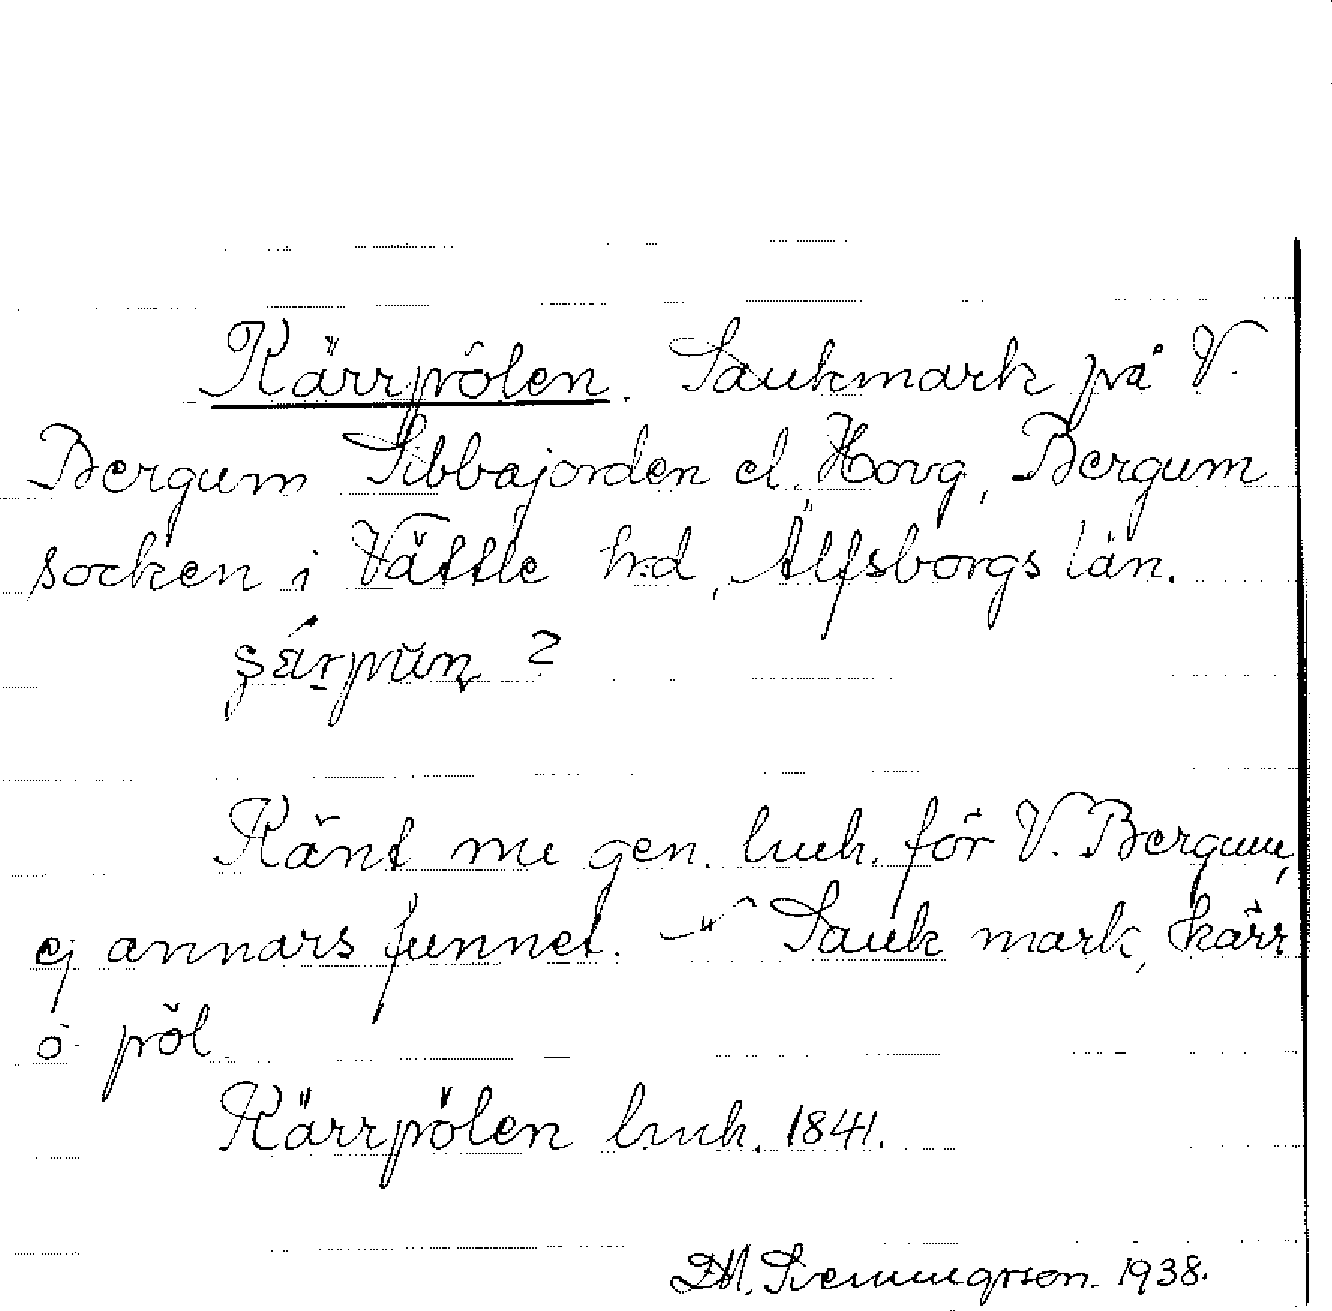 Kärrpölen. Sankmark på V.
Bergum Sibbajorden el. Hovg, Bergum
socken i Vättle hd, Älfsborgs län.
Känt nu gen. lmk. för V. Bergum,
ej annars funnet. Sank mark, kärr
o pöl
Kärrpölen lmk. 1841.
Svenningson. 1938.